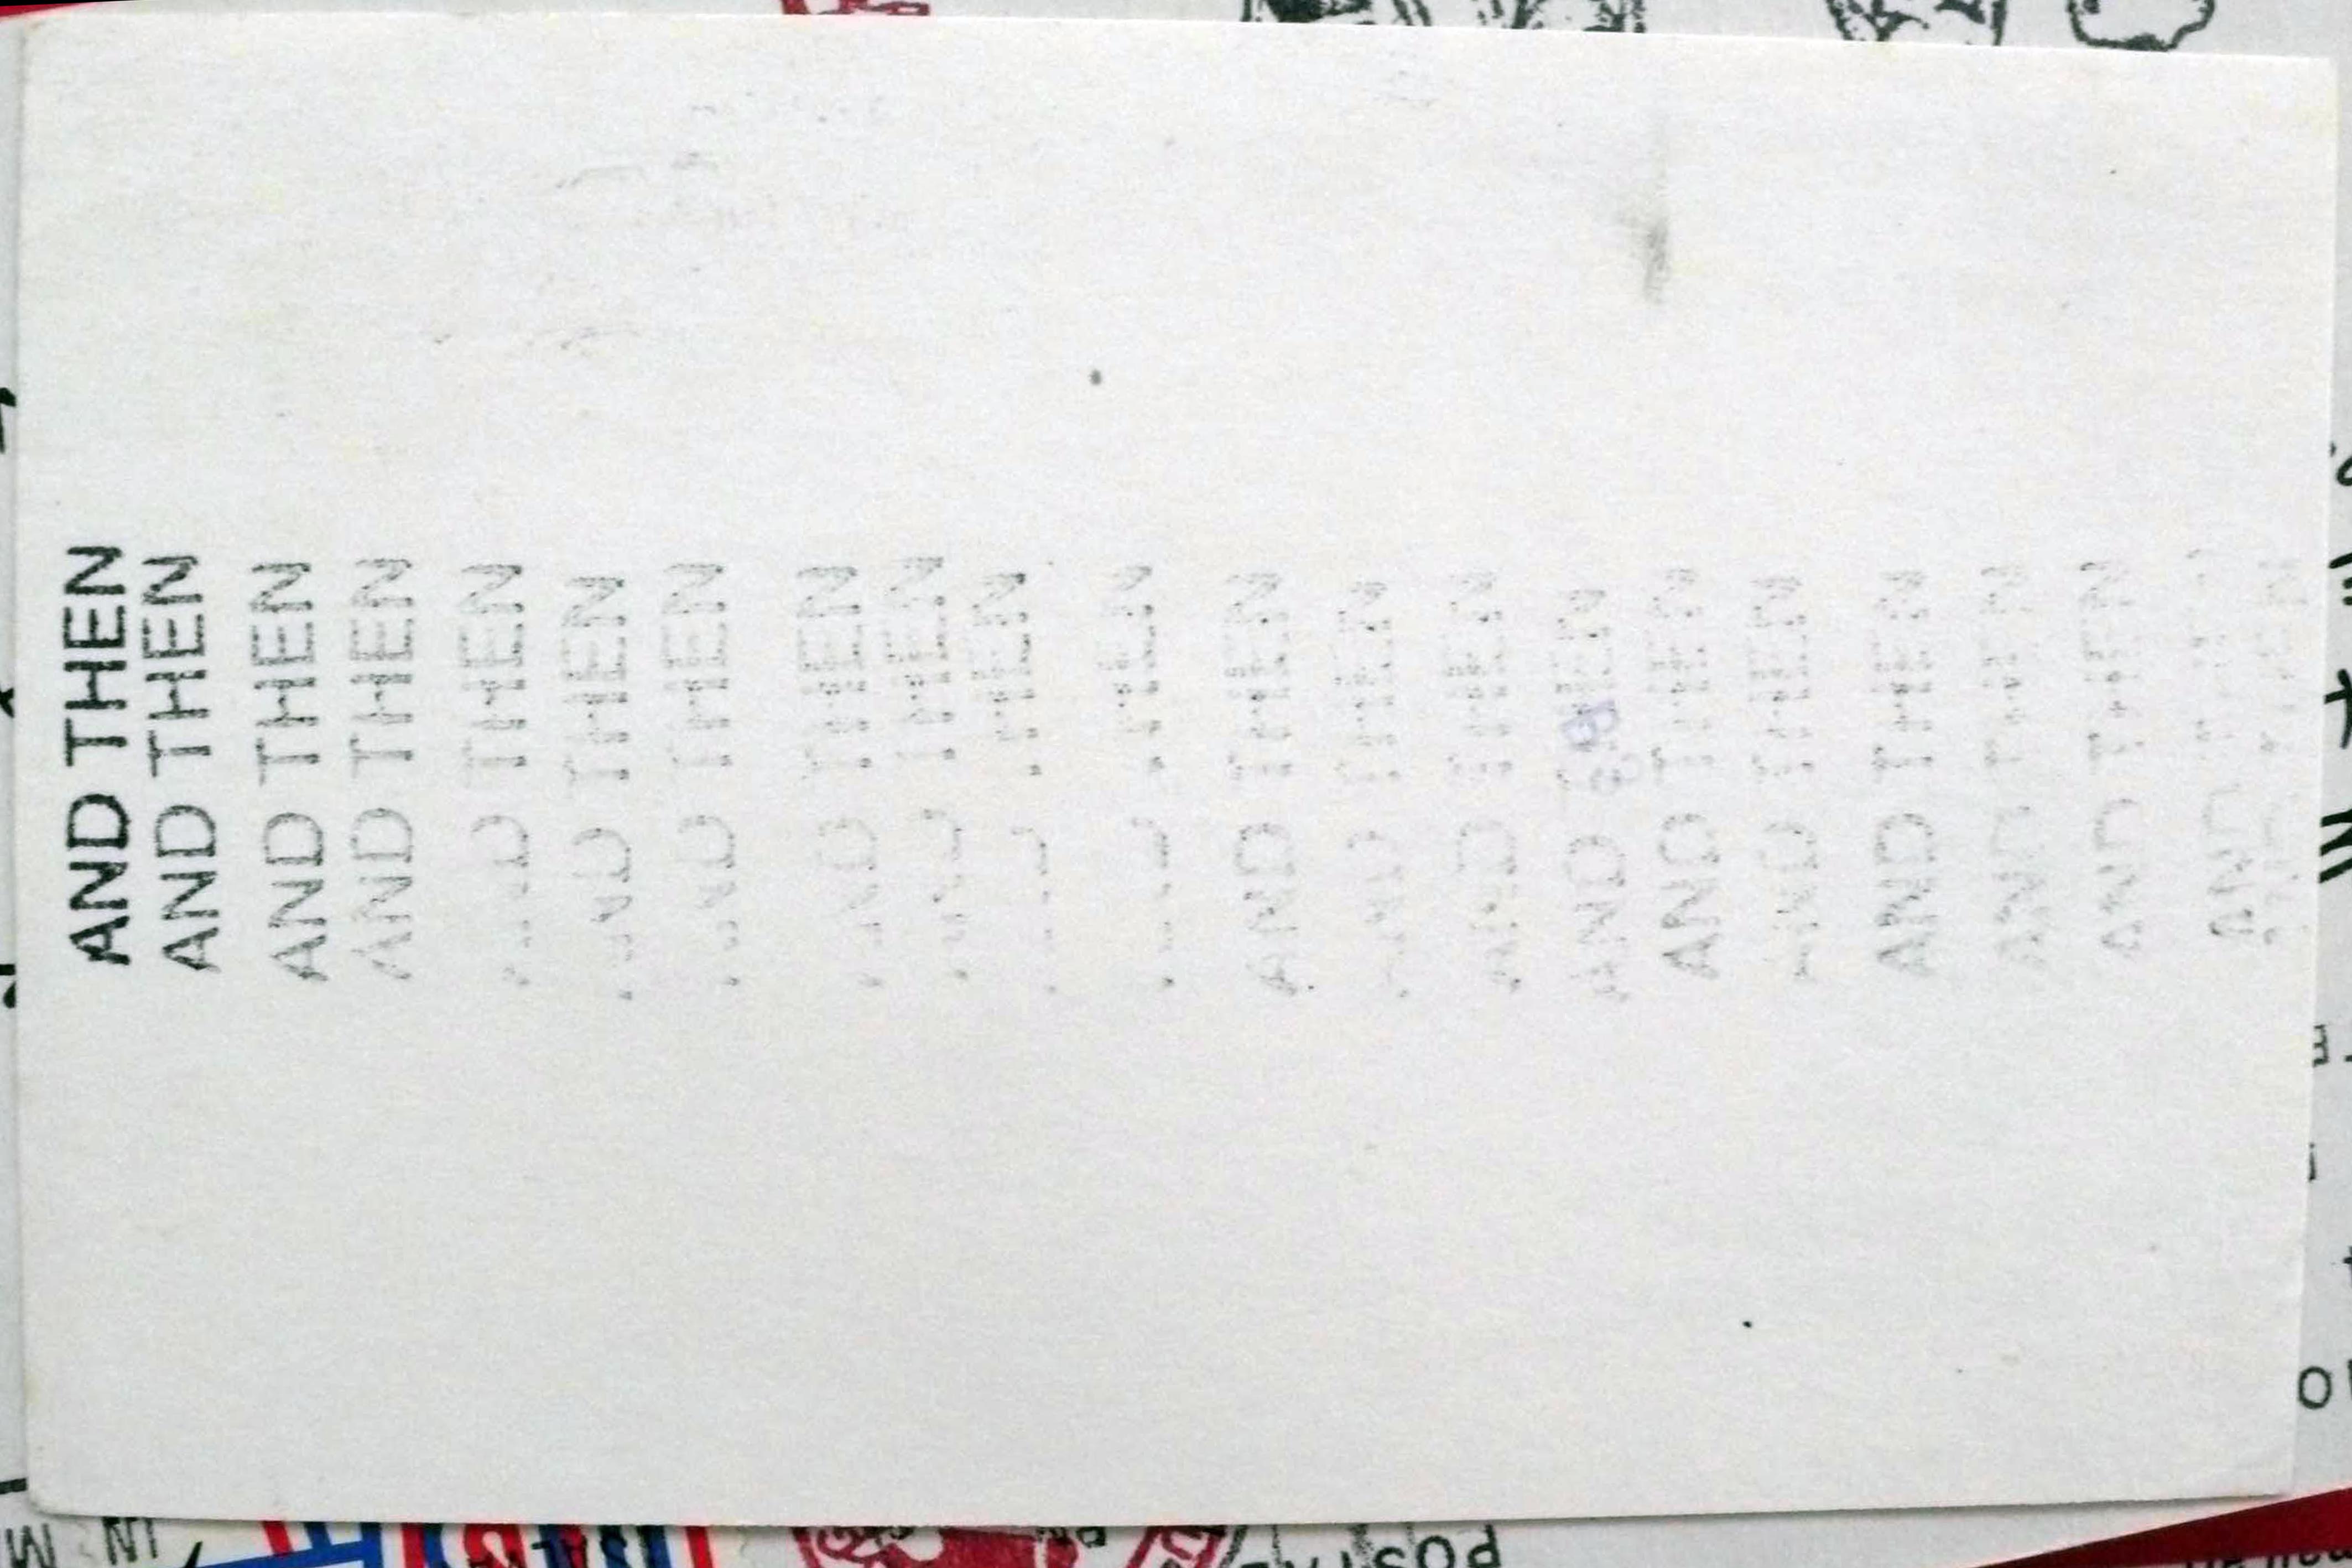 AND THEN
AND THEN
AND THEN
AND THEN
AND THEN
AND THEN
AND THEN
AND THEN
AND THEN
THEN
THEN
AND THEN
AND THEN
AND THEN
AND THEN
AND THEN
AND THEN
AND THEN
AND THEN
AND THEN
AND